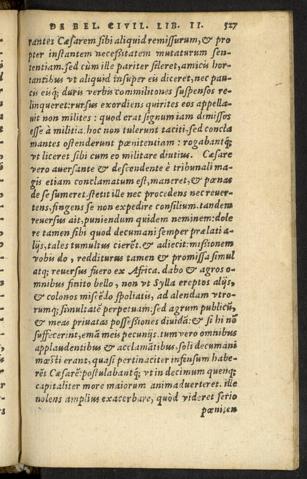 DE BEL. CIVIL. LIB. II. 527
rantes Cæsarem sibi aliquid remissurum, & pro
pter instantem necessitatem mutaturum sen-
tentiam. sed cùm ille pariter sileret, amicis hor-
tantibus vt aliquid insuper eis diceret, nec pau-
cis eiq́; duris verbis commilitones suspensos re-
linqueret: rursus exordiens quirites eos appella-
uit non milites : quod erat signum iam dimissos
esse à militia. hoc non tulerunt taciti. sed concla
mantes ostenderunt pœnitentiam : rogabantq́;
vt liceret sibi cum eo militare diutius. Cæsare
vero auersante & descendente è tribunali ma-
gis etiam conclamatum est, maneret, & pœnas
de se sumeret. stetit ille nec procedens nec reuer-
tens, fingens se non expedire consilium. tandem
reuersus ait, puniendum quidem neminem: dole
re tamen sibi quod decumani semper prælati a-
lijs, tales tumultus cierẽt. & adiecit: missionem
vobis do , redditurus tamen & promissa simul
atq; reuersus fuero ex Africa. dabo & agros o-
mnibus finito bello , non vt Sylla ereptos alijs,
& colonos miscẽdo spoliatis, ad alendam vtro-
rumq; simultatẽ perpetuam: sed agrum publicũ,
& meas priuatas possessiones diuidã: & si hi nõ
suffecerint, emã meis pecunijs. tum vero omnibus
applaudentibus & acclamãtibus. soli decumani
mœsti erant, quasi pertinaciter infensum habe-
rẽt Cæsarẽ: postulabantq́; vt in decimum quenq;
capitaliter more maiorum animaduerteret. ille
nolens amplius exacerbare, quòd videret serio
pœni-